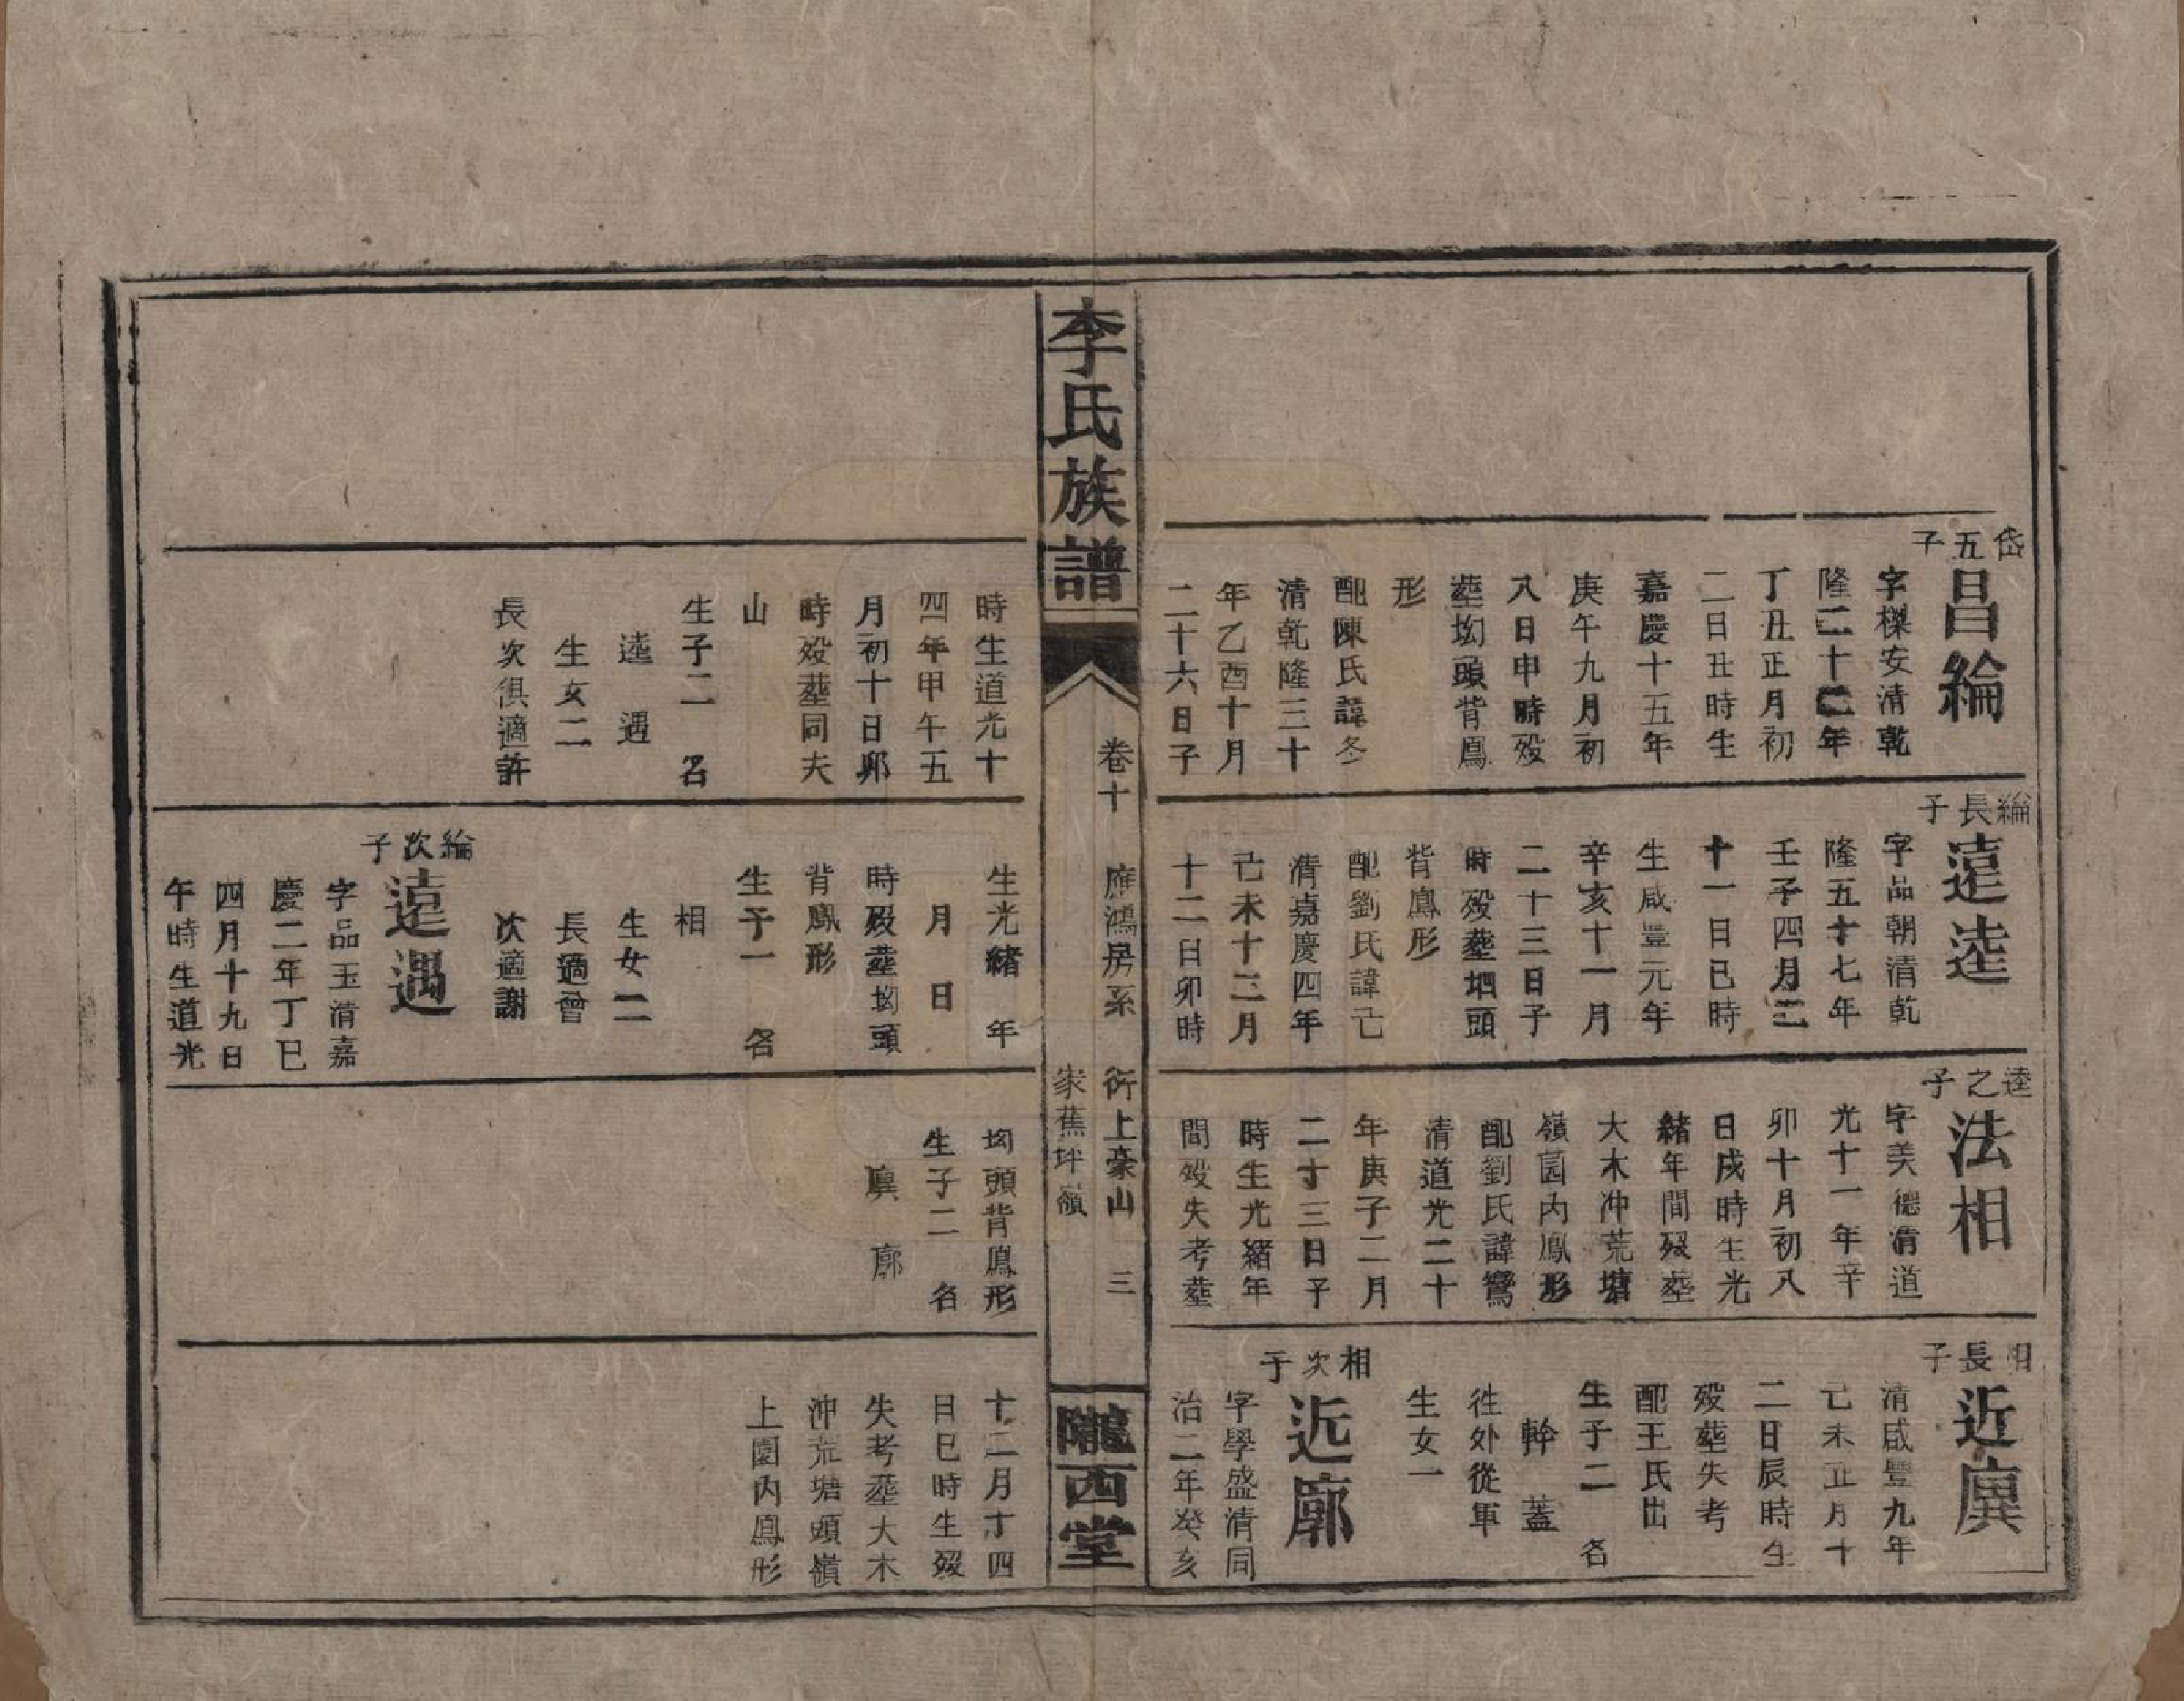 岱五子
昌綸
字樑安清乾
隆二十二年
丁丑正月初
二日丑時生
嘉慶十五年
庚午九月初
八日申時歿
塟坳頭背鳳
形
配陳氏諱冬
清乾隆三十
年乙酉十月
二十六日子
綸長子
遠逵
字品朝清乾
隆五十七年
壬子四月二
十一日巳時
生咸豐元年
辛亥十一月
二十三日子
時歿塟坳頭
背鳳形
配劉氏諱己
清嘉慶四年
己未十二月
十二日卯時
逵之子
法相
字美德清道
光十一年辛
卯十月初八
日戌時生光
緒年間歿塟
大木冲荒塘
嶺園内鳳形
配劉氏諱鸞
清道光二十
年庚子二月
二十三日子
時生光緒年
間歿失考塟
相長子
近㢞
清咸豐九年
己未正月十
二日辰時生
歿塟失考
配王氏出
生子二 名
幹 蓋
徃外從軍
生女一
相次子
近廓
字學盛清同
治二年癸亥
李氏族譜
卷十
應鴻房系
衍上豪山
家蕉坪嶺
三
隴西堂
時生道光十
四年甲午五
月初十日卯
時歿塟同夫
山
生子二 名
逵 遇
生女二
長次俱適許
生光緒 年
月 日
時歿塟坳頭
背鳳形
生子一 名
相
生女二
長適曾
次適謝
綸次子
遠遇
字品玉清嘉
慶二年丁巳
四月十九日
午時生道光
坳頭背鳳形
生子二 名
㢞 廓
十二月十四
日巳時生歿
失考塟大木
沖荒塘頭嶺
上園内鳳形